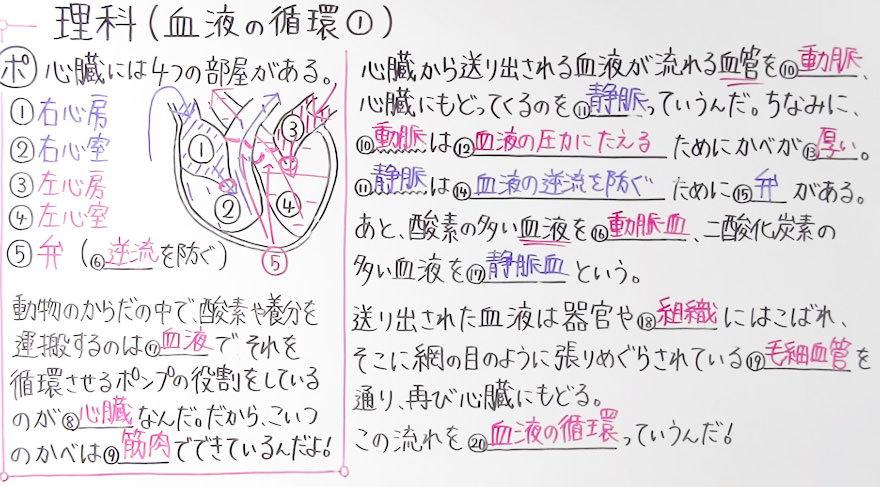 理科(血液の循環①)
ポ 心臓には4つの部屋がある。
①右心房
②右心室
③左心房
④左心室
⑤弁(⑥逆流を防ぐ)
①
②
③
④
⑤
動物のからだの中で、酸素や養分を
運搬するのは⑦血液でそれを
循環させるポンプの役割をしている
のが⑧心臓なんだ。だから、こいつ
のかべは⑨筋肉でできているんだよ!
心臓から送り出される血液が流れる血管を⑩動脈、
心臓にもどってくるのを⑪静脈っていうんだ。ちなみに、
⑩動脈は⑫血液の圧力にたえるためにかべが⑬厚い。
⑪静脈は⑭血液の逆流を防ぐために⑮弁がある。
あと、酸素の多い血液を⑯動脈血、二酸化炭素の
多い血液を⑰静脈血という。
送り出された血液は器官や⑱組織にはこばれ、
そこに網の目のように張りめぐらされている⑲毛細血管を
通り、再び心臓にもどる。
この流れを⑳血液の循環っていうんだ!